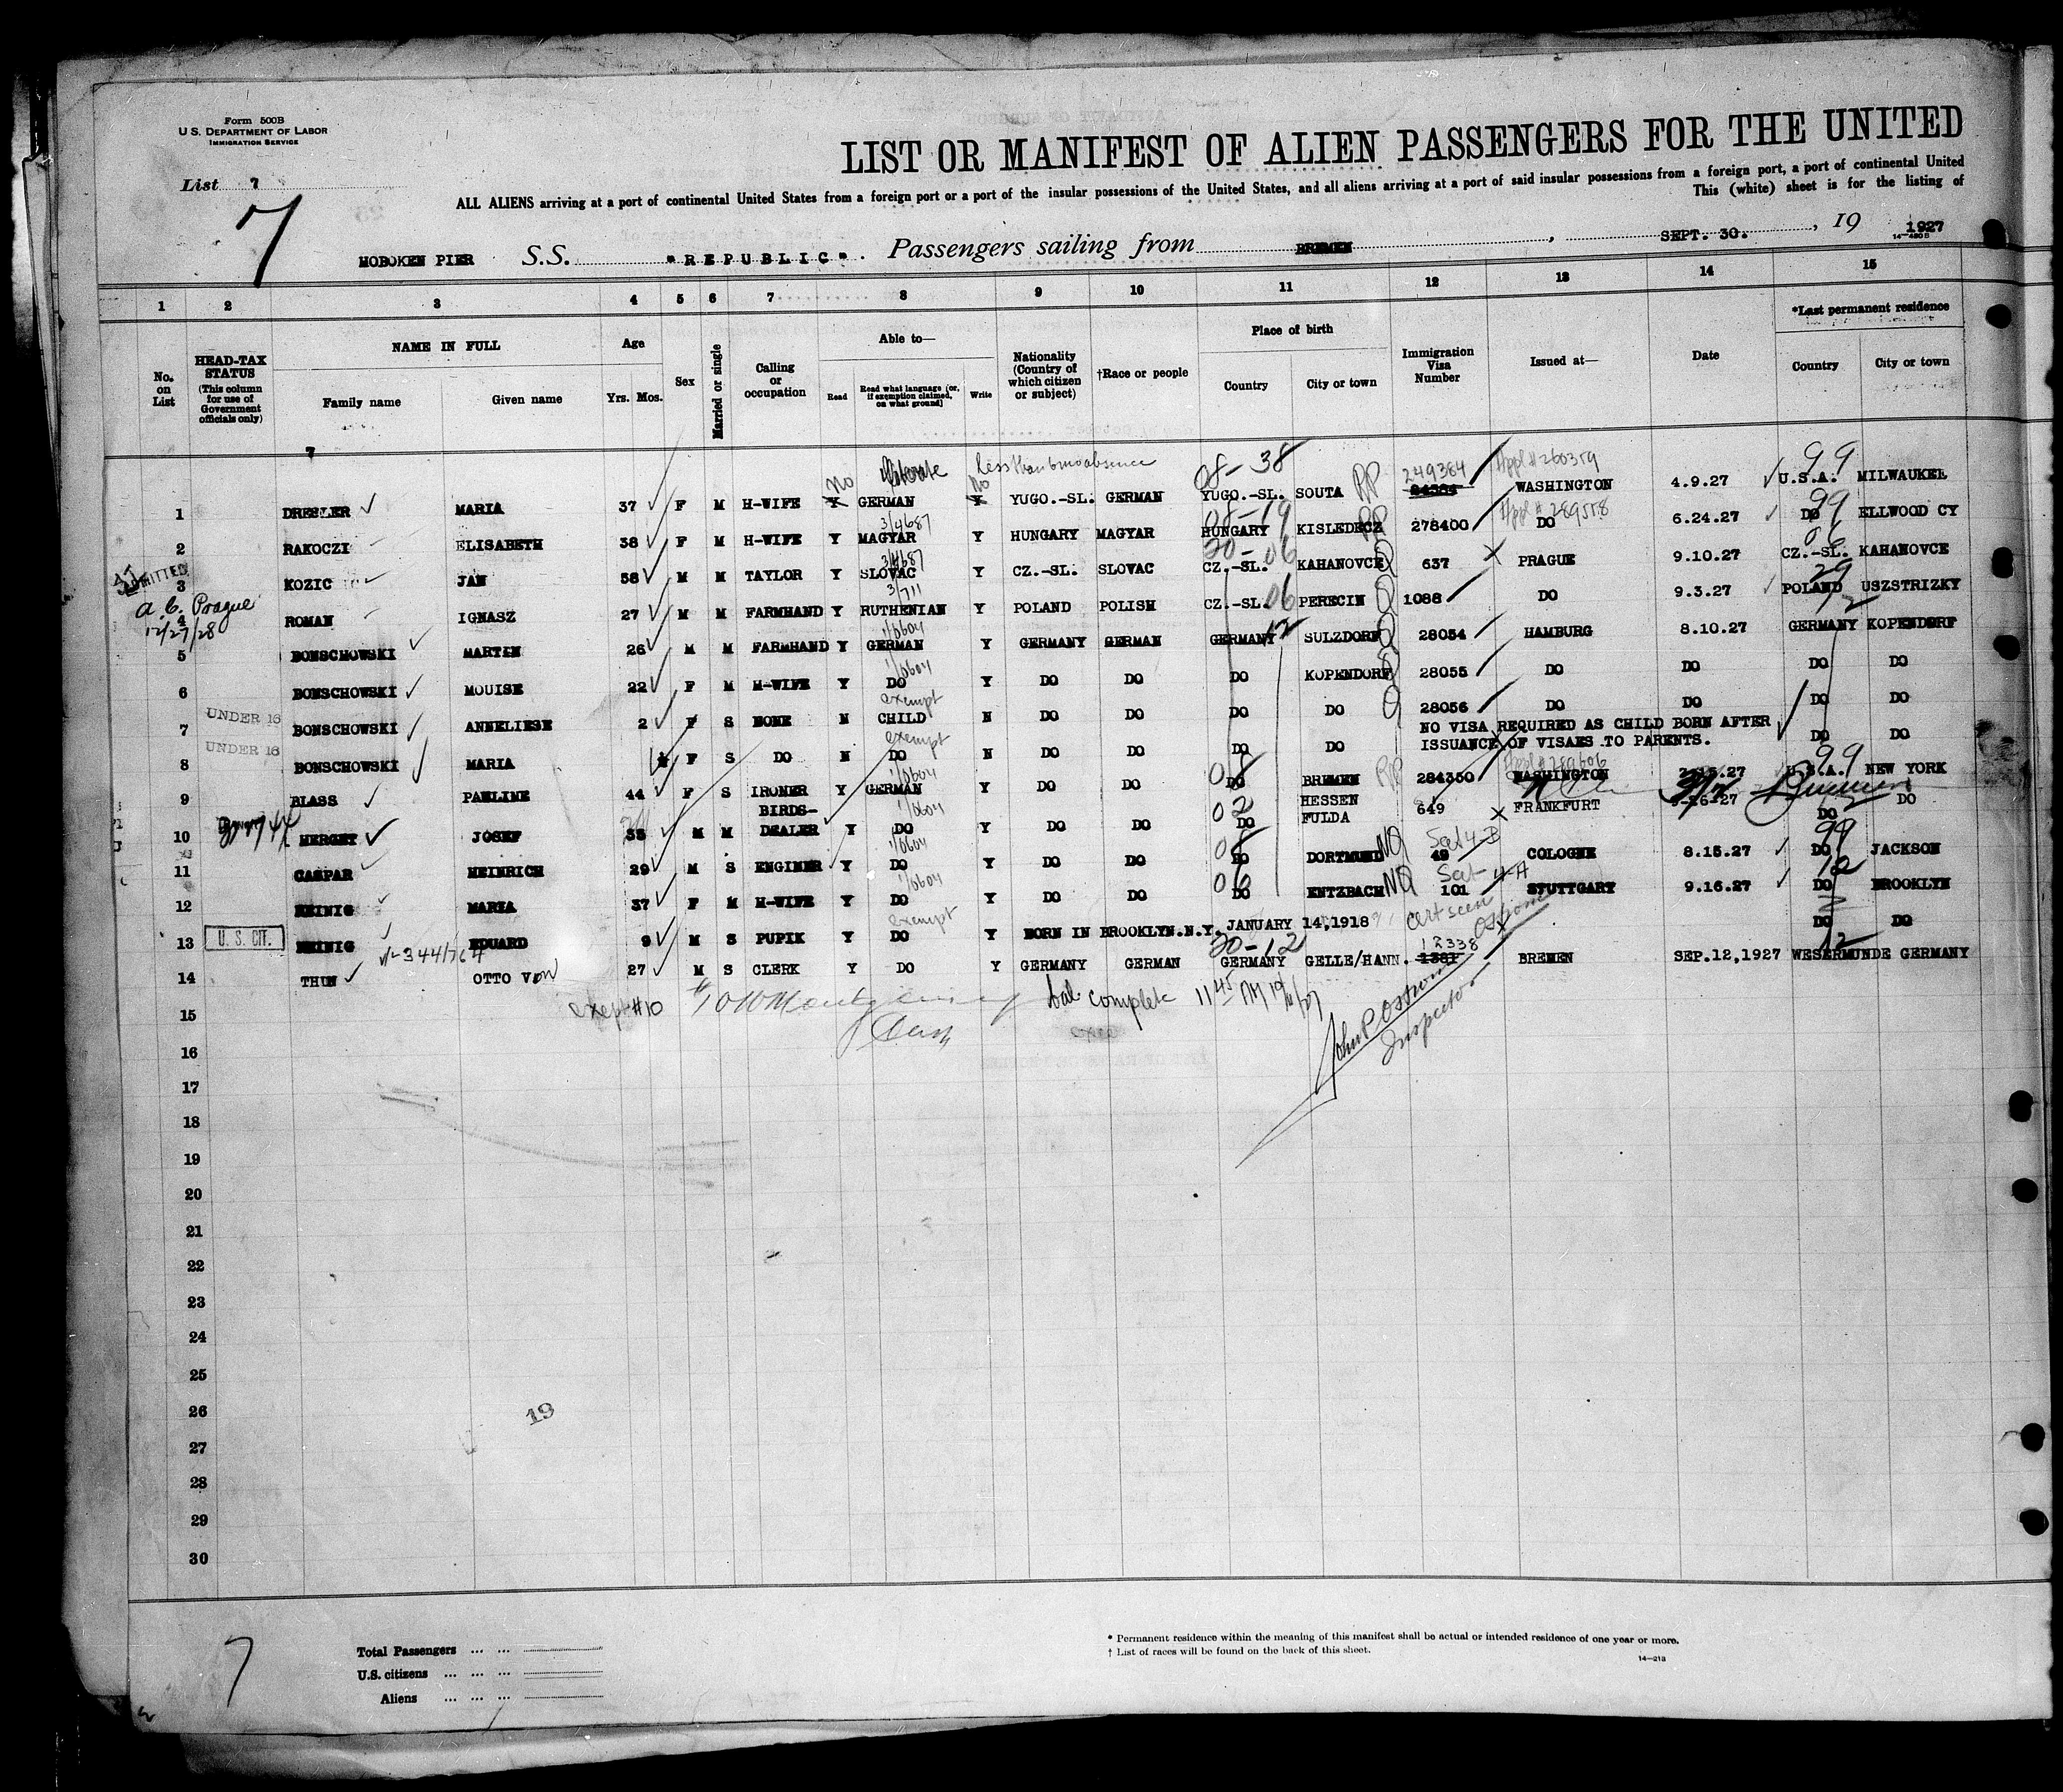 Form 500B
U. S. DEPARTMENT OF LABOR
IMMIGRATION SERVICE
List 7
7
LIST OR MANIFEST OF ALIEN PASSENGERS FOR THE UNITED
ALL ALIENS arriving at a port of continental United States from a foreign port or a port of the insular possessions of the United States, and all aliens arriving at a port of said insular possessions from a foreign port, a port of continental United
This (white) sheet is for the listing of
HOBOKEN PIER S.S. "REPUBLIC" Passengers sailing from BREMEN, SEPT. 30., 19 1927
14-480 B
1 2 3 4 5 6 7 8 9 10 11 12 13 14 15
No. on List
HEAD-TAX STATUS (This column for use of Government officials only)
NAME IN FULL
Family name Given name
Age
Yrs. Mos.
Sex
Married or single
Calling or occupation
Able to—
Read
Read what language (or, if exemption claimed, on what ground)
Write
Nationality (Country of which citizen or subject)
†Race or people
Place of birth
Country City or town
Immigration Visa Number
Issued at—
Date
*Last permanent residence
Country City or town
7
no no less than 6 mo absence 08-38 249384 Appl # 260359 99
1 DRESLER MARIA 37 F M H-WIFE Y GERMAN Y YUGO.-SL. GERMAN YUGO.-SL. SOUTA PP 84384 WASHINGTON 4.9.27 U.S.A. MILWAUKEE
3/4687 08-19 Appl # 289558 99
2 RAKOCZI ELISABETH 38 F M H-WIFE Y MAGYAR Y HUNGARY MAGYAR HUNGARY KISLEDECZ PP 278400 DO 6.24.27 DO ELLWOOD CY
ADMITTED 3/4687 20-06 06
3 KOZIC JAN 58 M M TAYLOR Y SLOVAC Y CZ.-SL. SLOVAC CZ.-SL. KAHANOVCE Q 637 PRAGUE 9.10.27 CZ.-SL. KAHANOVCE
a. C. Prague 12/27/28
3/711 06 29
4 ROMAN IGNASZ 27 M M FARMHAND Y RUTHENIAN Y POLAND POLISH CZ.-SL. PERECIN Q 1088 DO 9.3.27 POLAND USZSTRIZKY
1/0604 12 12
5 BONSCHOWSKI MARTIN 26 M M FARMHAND Y GERMAN Y GERMANY GERMAN GERMANY SULZDORF Q 28054 HAMBURG 8.10.27 GERMANY KOPENDORF
1/0604
6 BONSCHOWSKI MOUISE 22 F M H-WIFE Y DO Y DO DO DO KOPENDORF Q 28055 DO DO DO DO
UNDER 16 exempt
7 BONSCHOWSKI ANNELIESE 2 F S NONE N CHILD N DO DO DO DO Q 28056 DO DO DO DO
UNDER 16 exempt
8 BONSCHOWSKI MARIA F S DO N DO N DO DO DO DO NO VISA REQUIRED AS CHILD BORN AFTER ISSUANCE OF VISAES TO PARENTS. DO DO
1/0604 08 99
9 BLASS PAULINE 44 F S IRONER Y GERMAN Y DO DO DO BREMEN PP 284350 WASHINGTON U.S.A. NEW YORK
1/0604 02
10 HERGET JOSEF 35 M M BIRDS-DEALER Y DO Y DO DO DO HESSEN FULDA 649 FRANKFURT DO DO
1/0604 08 Sect 4-B 99
11 CASPAR HEINRICH 29 M S ENGINER Y DO Y DO DO DO DORTMUND NQ 49 COLOGNE 8.15.27 DO JACKSON
1/0604 06 Sect 4-A 12
12 HEINIG MARIA 37 F M H-WIFE Y DO Y DO DO DO ENTZBACH NQ 101 STUTTGART 9.16.27 DO BROOKLYN
U. S. CIT. exempt
13 HEINIG EDUARD 9 M S PUPIK Y DO Y BORN IN BROOKLYN.N.Y. JANUARY 14,1918 cert seen Ostrom DO DO
20-12 12338 12
14 THUN OTTO VON 27 M S CLERK Y DO Y GERMANY GERMAN GERMANY GELLE/HANN. 1381 BREMEN SEP.12,1927 WESERMUNDE GERMANY
15 except #10 bal complete 11 45 AM
John P. Ostrom
Inspector
16
17
18
19
20
21
22
23
24
25
26
27
28
29
30
19
7
Total Passengers
U.S. citizens
Aliens
* Permanent residence within the meaning of this manifest shall be actual or intended residence of one year or more.
† List of races will be found on the back of this sheet.
14-213